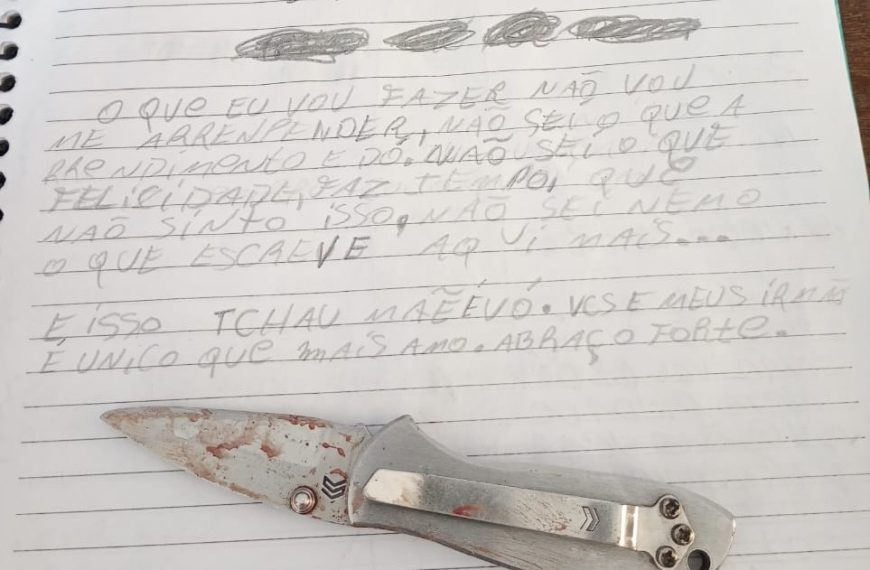 O QUE EU VOU FAZER NÃO VOU
ME ARRENPENDER, NÃO SEI O QUE A
RRENDIMENTO E DÓ. NÃO SEI O QUE
FELICIDADE, FAZ TEMPO, QUE
NÃO SINTO ISSO, NÃO SEI NEMO
O QUE ESCREVE AQUI MAIS...
E ISSO TCHAU MÃE É VÓ. VCS E MEUS IRMÃO
É UNICO QUE MAIS AMO. ABRAÇO FORTE.